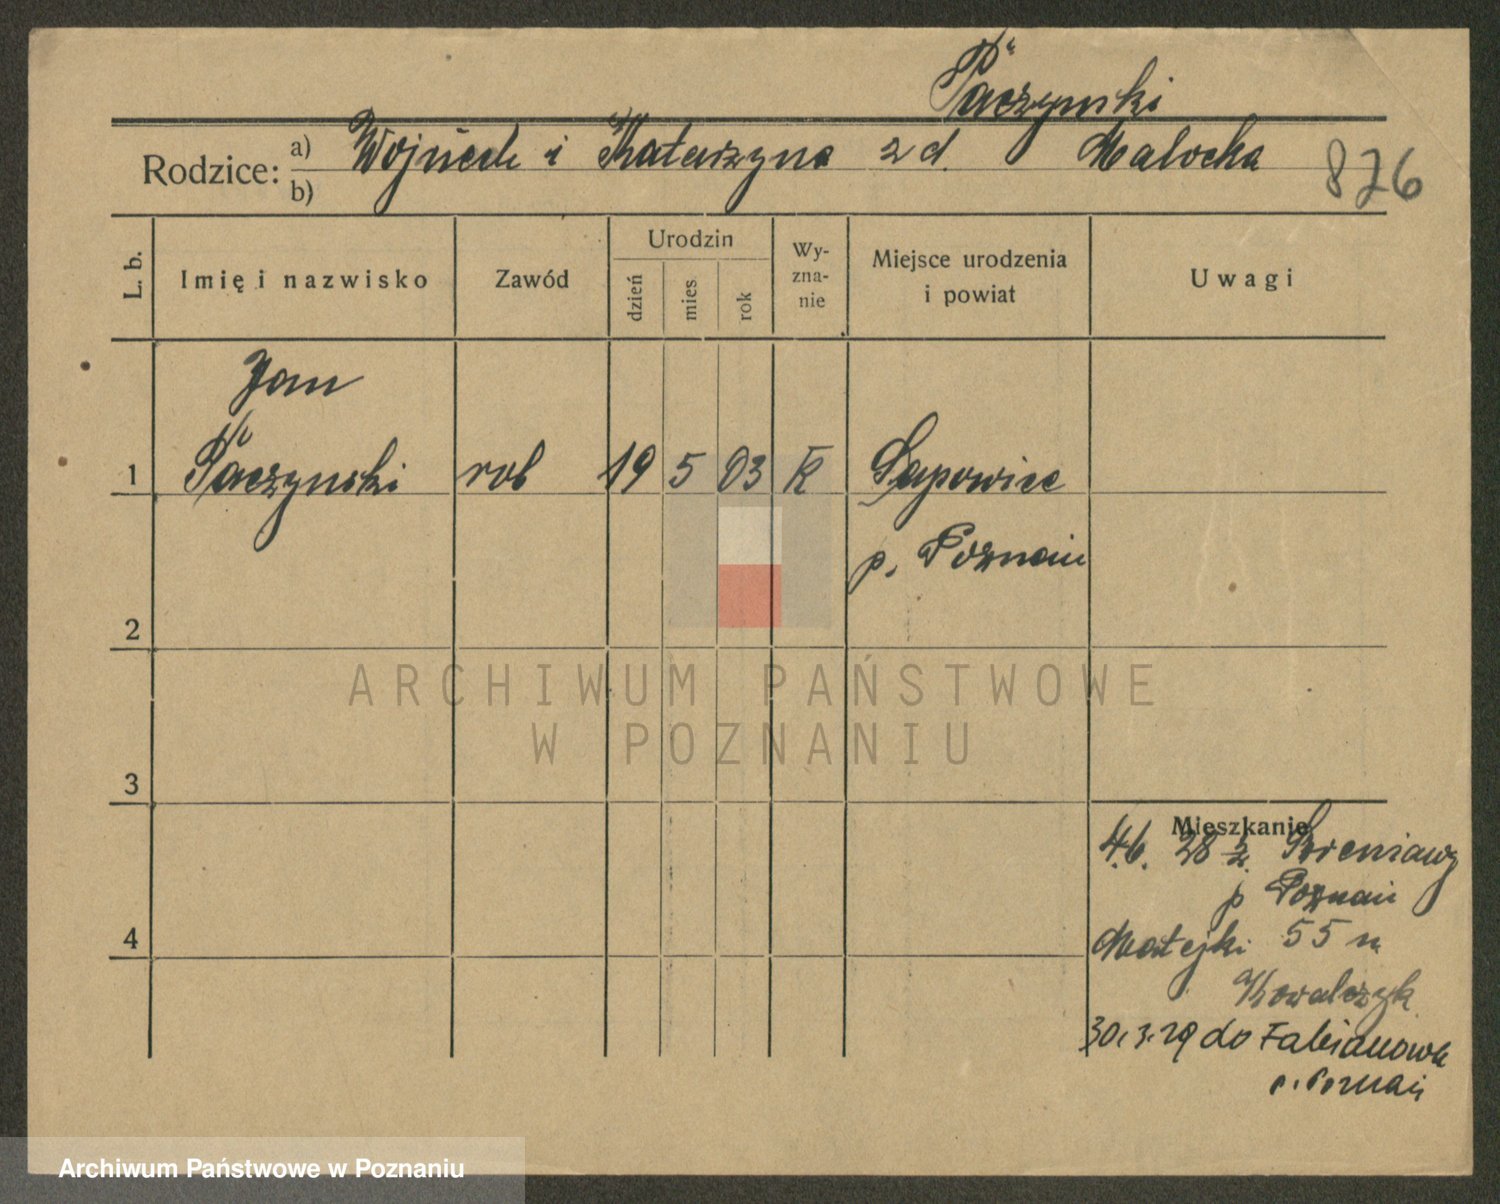 Paczynski
Rodzice: a) Wojciech i Katarzyna z d. Malocka
b)
876
L. b.
Imię i nazwisko
Zawód
Urodzin
dzień
mies
rok
Wy-
zna-
nie
Miejsce urodzenia
i powiat
Uwagi
Jan
1 Paczynski rob 19 5 03 K Sapowice
p. Poznań
2
ARCHIWUM PAŃSTWOWE
W POZNANIU
3
Mieszkanie
4.6. 28 z Sreniawy
p Poznań
4
Matejki 55 u
Kowalczyk
30.3.29 do Fabianowa
p. Poznań
Archiwum Państwowe w Poznaniu